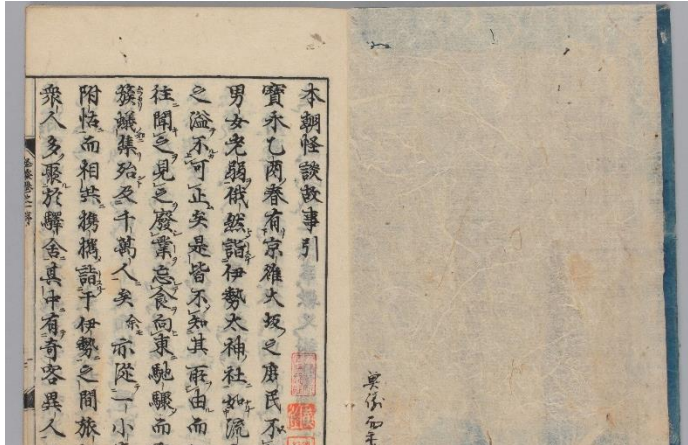 本朝怪談故事引
寶永乙酉春有京雒大坂之庶民不
男女老弱俄然詣伊勢太神社如流
之溢不可止矣是皆不知其所由而
往聞之見之廢業忘食向東馳驟而
簇蟻集殆及千萬人矣余亦從一小
附恬而相共携攜詣于伊勢之間旅
衆人多聚於驛舍其中有奇客異人